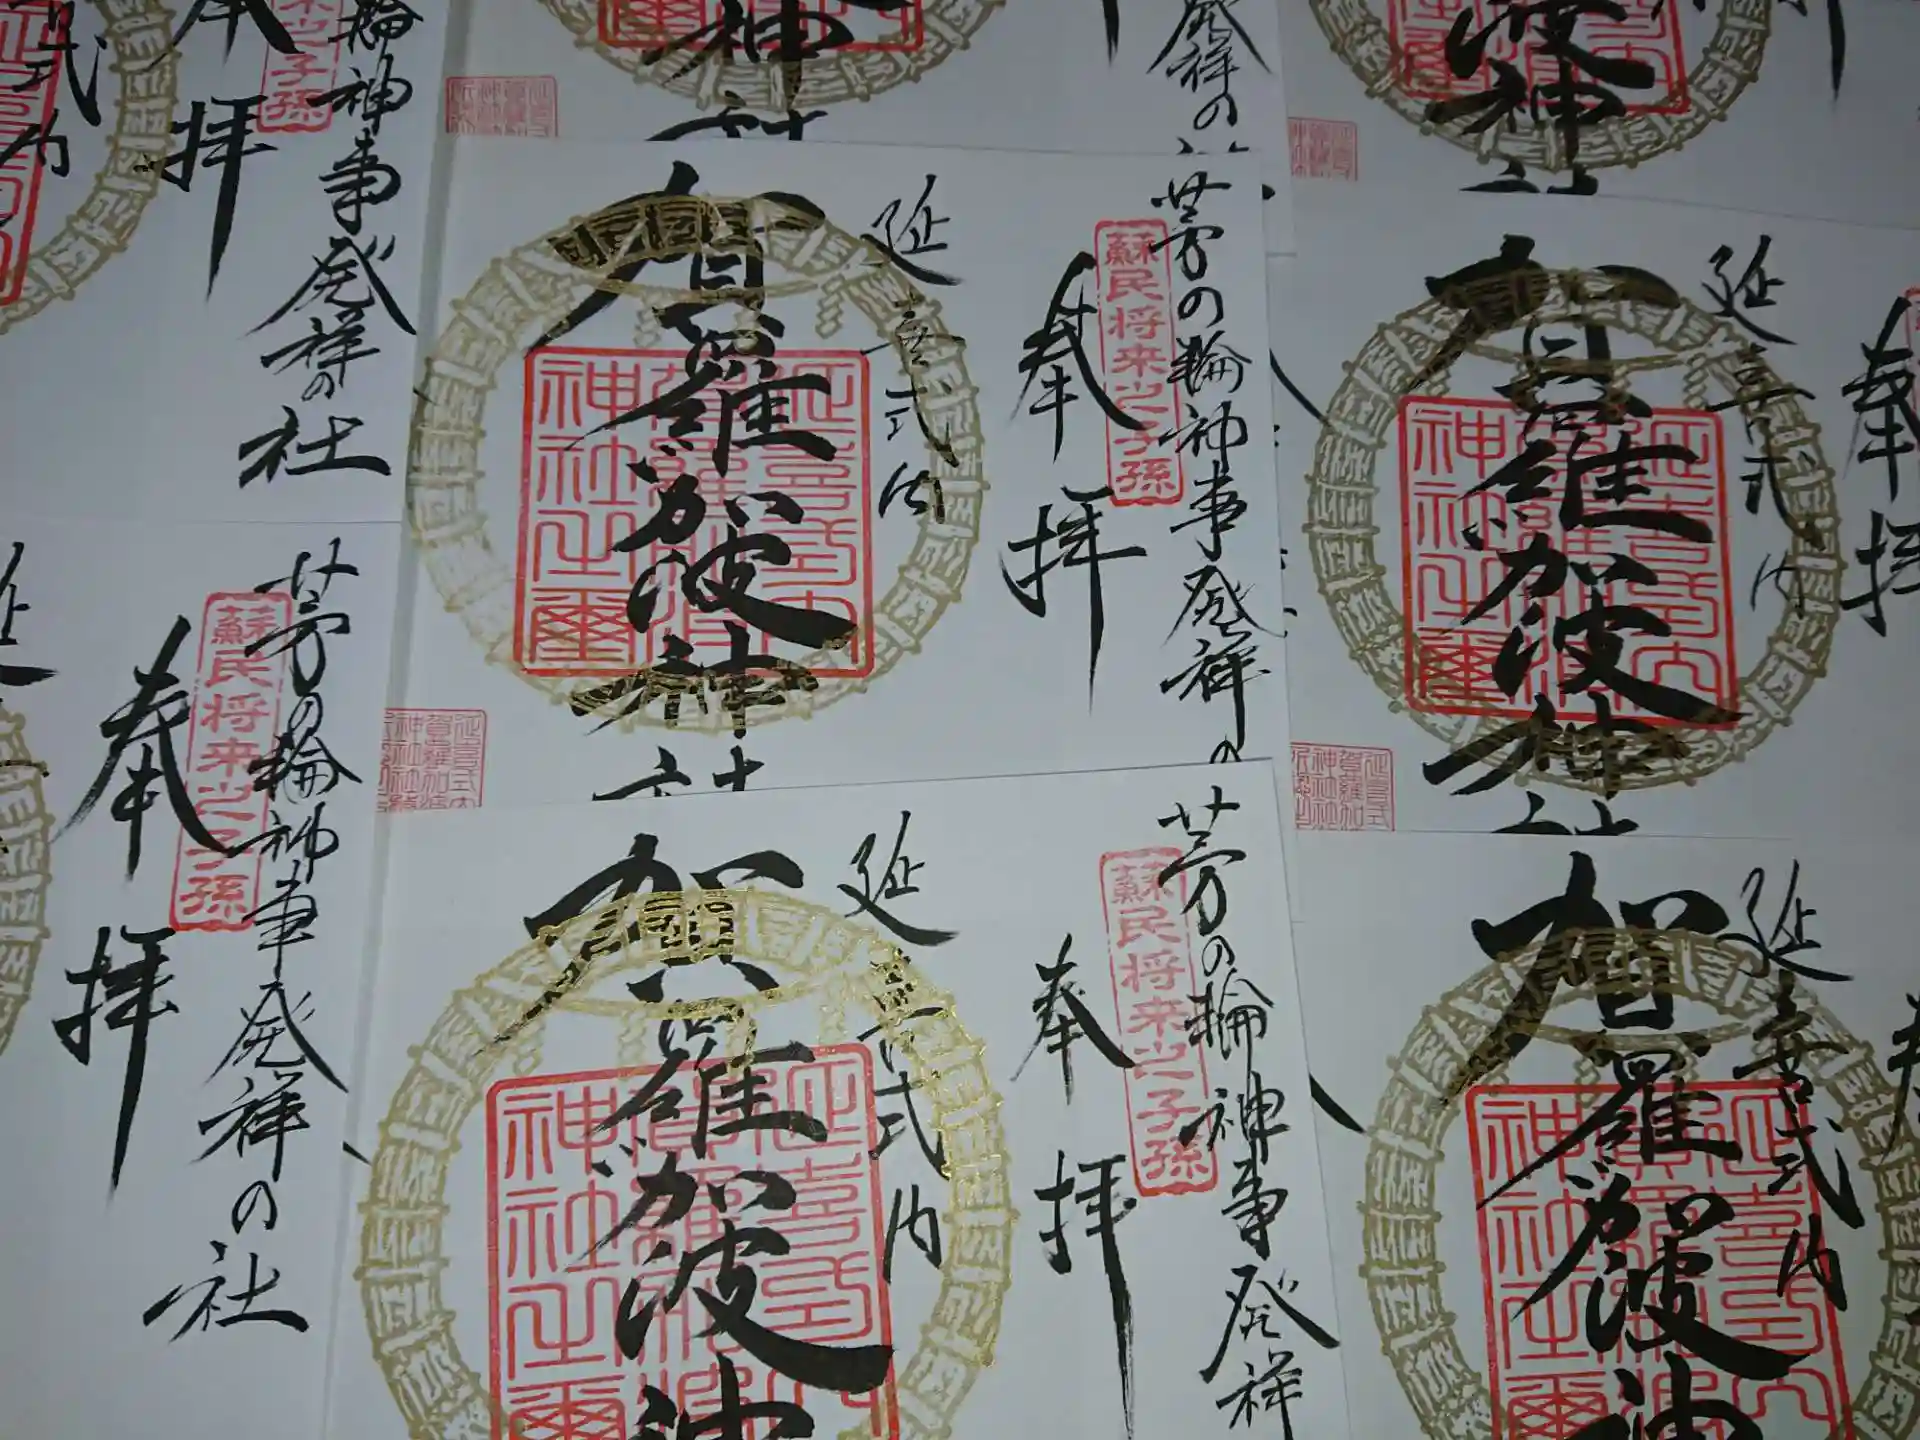 茅の輪神事発祥の社
蘇民将来之子孫
奉拝
延喜式内
賀羅加波神社
延喜式内
賀羅加波
神社之璽
茅の輪神事発祥の
蘇民将来之子孫
奉拝
延喜式内
賀羅加波神社
延喜式内
賀羅加波
神社之璽
茅の輪神事発祥の社
蘇民将来之子孫
奉拝
茅の輪神事発祥
蘇民将来之子孫
奉拝
延喜式内
賀羅加波神
延喜式内
賀羅加波神
輪神事発祥の社
来之子孫
奉拝